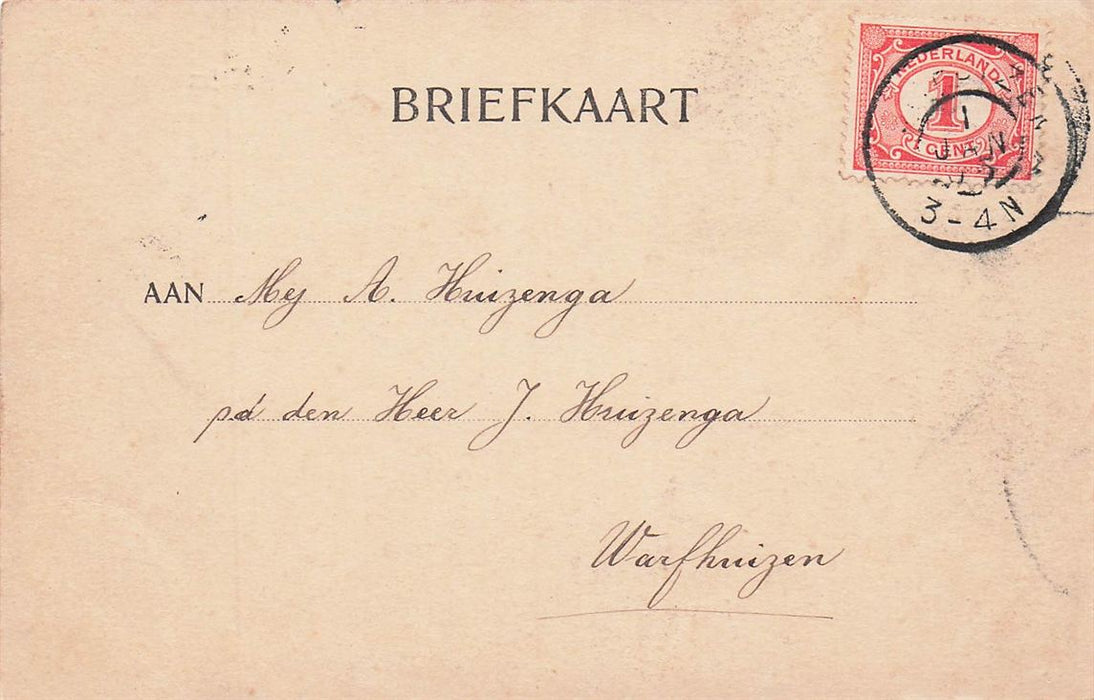 BRIEFKAART
NEDERLAND
1
1 CENT
1
JAN
3-4N
AAN Mej A. Huizenga
pd den Heer J. Huizenga
Warfhuizen